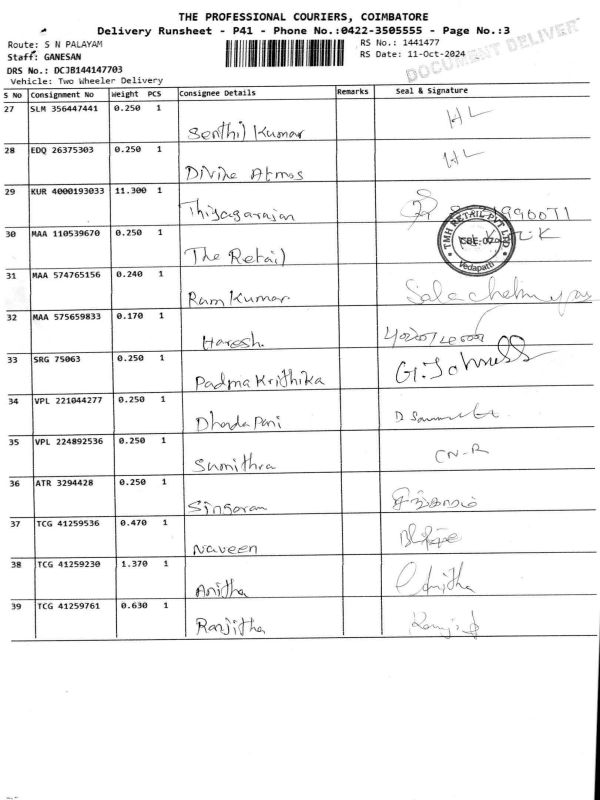 THE PROFESSIONAL COURIERS, COIMBATORE
Delivery Runsheet - P41 - Phone No.:0422-3505555 - Page No.:3
DOCUMENT DELIVER
Route: S N PALAYAM
RS No.: 1441477
Staff: GANESAN
RS Date: 11-Oct-2024
DRS No.: DCJB144147703
Vehicle: Two Wheeler Delivery
S No Consignment No Weight PCS Consignee Details Remarks Seal & Signature
27 SLM 356447441 0.250 1 Senthil Kumar HL
28 EDQ 26375303 0.250 1 Divine Atmos HL
29 KUR 4000193033 11.300 1 Thiyagarajan
30 MAA 110539670 0.250 1 The Retail TMH RETAIL PVT LTD CBE-020 Vedapatti
31 MAA 574765156 0.240 1 Ram Kumar
32 MAA 575659833 0.170 1 Haresh
33 SRG 75063 0.250 1 Padma Krithika
34 VPL 221044277 0.250 1 Dhanda Pani
35 VPL 224892536 0.250 1 Sumithra CN-R
36 ATR 3294428 0.250 1 Singaram சிங்காரம்
37 TCG 41259536 0.470 1 Naveen
38 TCG 41259230 1.370 1 Anitha Anitha
39 TCG 41259761 0.630 1 Ranjitha